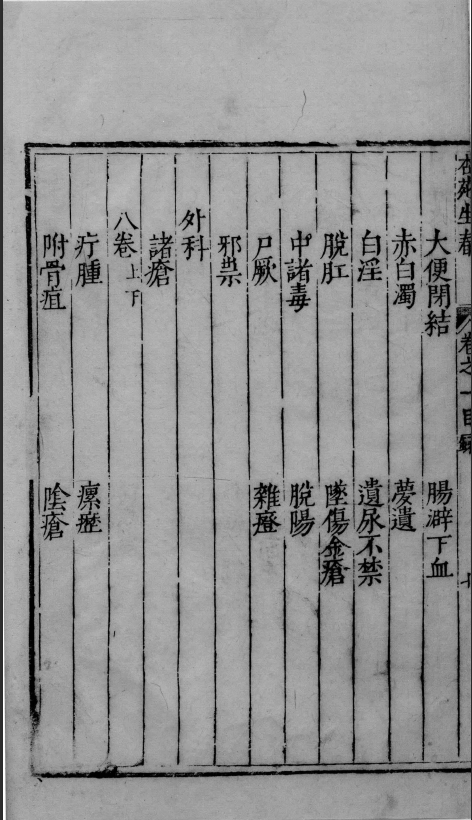 杏苑生春 卷之一目録 七
大便閉結 腸澼下血
赤白濁 夢遺
白淫 遺尿不禁
脫肛 墜傷金瘡
中諸毒 脫腸
尸厥 雜癊
邪祟
外科
諸瘡
八卷上下
疔腫 瘰癧
咐骨疽 陰瘡